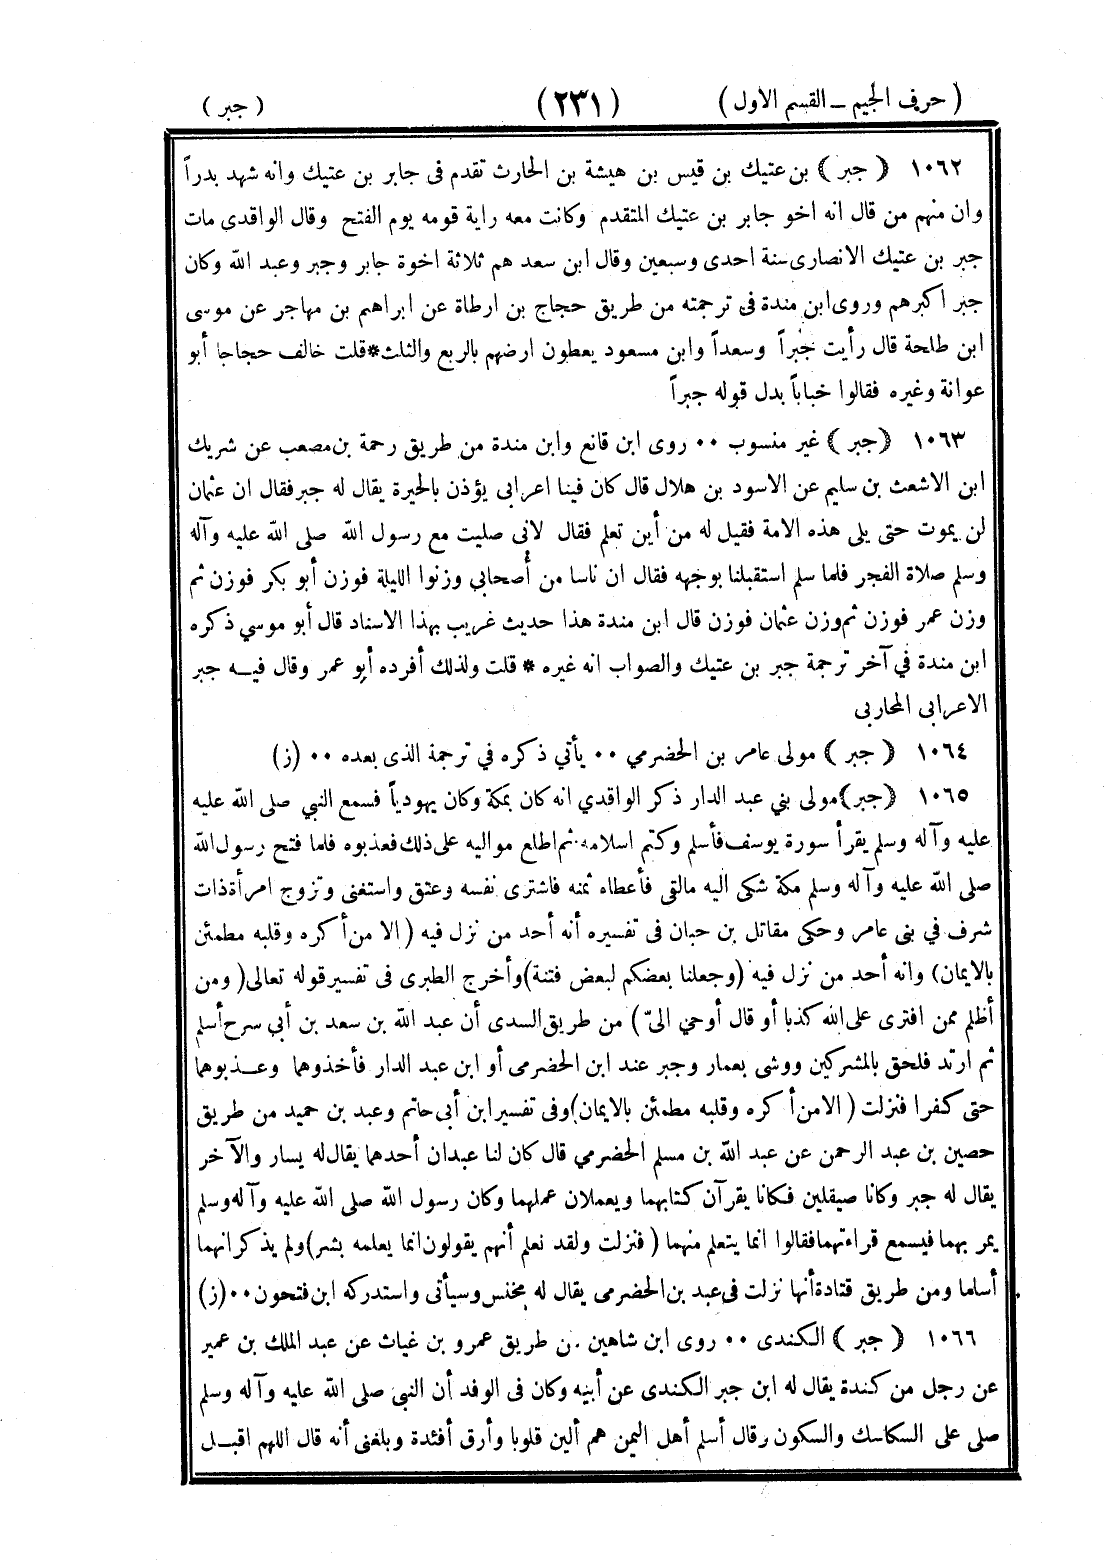 ( حرف الجيم – القسم الاول ) (٢٣١) ( جبر )
١٠٦٢ ( جبر ) بن عتيك بن قيس بن هيشة بن الحارث تقدم فى جابر بن عتيك وانه شهد بدراً
وان منهم من قال انه اخو جابر بن عتيك المتقدم وكانت معه راية قومه يوم الفتح وقال الواقدى مات
جبر بن عتيك الانصارى سنة احدى وسبعين وقال ابن سعد هم ثلاثة اخوة جابر وجبر وعبد الله وكان
جبر اكبرهم وروى ابن مندة فى ترجمته من طريق حجاج بن ارطاة عن ابراهيم بن مهاجر عن موسى
ابن طلحة قال رأيت جبراً وسعداً وابن مسعود يعطون ارضهم بالربع والثلث*قلت خالف حجاجا أبو
عوانة وغيره فقالوا خباباً بدل قوله جبراً
١٠٦٣ (جبر ) غير منسوب ٠٠ روى ابن قانع وابن مندة من طريق رحمة بن مصعب عن شريك
ابن الاشعث بن سليم عن الاسود بن هلال قال كان فينا اعرابى يؤذن بالحيرة يقال له جبر فقال ان عثمان
لن يموت حتى يلى هذه الامة فقيل له من أين تعلم فقال لانى صليت مع رسول الله صلى الله عليه وآله
وسلم صلاة الفجر فلما سلم استقبلنا بوجهه فقال ان ناسا من أصحابي وزنوا الليلة فوزن أبو بكر فوزن ثم
وزن عمر فوزن ثم وزن عثمان فوزن قال ابن مندة هذا حديث غريب بهذا الاسناد قال أبو موسي ذكره
ابن مندة في آخر ترجمة جبر بن عتيك والصواب انه غيره * قلت ولذلك أفرده أبو عمر وقال فيه جبر
الاعرابى المحاربى
١٠٦٤ ( جبر ) مولى عامر بن الحضرمي ٠٠ يأتي ذكره في ترجمة الذى بعده ٠٠ (ز)
١٠٦٥ (جبر)مولى بني عبد الدار ذكر الواقدي انه كان بمكة وكان يهودياً فسمع النبي صلى الله عليه
عليه وآله وسلم يقرأ سورة يوسف فأسلم وكتم اسلامه ثم اطلع مواليه على ذلك فعذبوه فلما فتح رسول الله
صلى الله عليه وآله وسلم مكة شكى اليه مالقى فأعطاه ثمنه فاشترى نفسه وعتق واستغنى وتزوج امرأة ذات
شرف في بنى عامر وحكى مقاتل بن حبان فى تفسيره أنه أحد من نزل فيه ( الا من أكره وقلبه مطمئن
بالايمان) وانه أحد من نزل فيه (وجعلنا بعضكم لبعض فتنة)وأخرج الطبرى فى تفسير قوله تعالى( ومن
أظلم ممن افترى على الله كذبا أو قال أوحي الىّ ) من طريق السدى أن عبد الله بن سعد بن أبي سرح أسلم
ثم ارتد فلحق بالمشركين ووشى بعمار وجبر عند ابن الحضرمى أو ابن عبد الدار فأخذوها وعذبوهما
حتى كفرا فنزلت ( الا من أكره وقلبه مطمئن بالايمان)وفى تفسير ابن أبى حاتم وعبد بن حميد من طريق
حصين بن عبد الرحمن عن عبد الله بن مسلم الحضرمي قال كان لنا عبدان أحدهما يقال له يسار والآخر
يقال له جبر وكانا صيقلين فكانا يقرآن كتابهما ويعملان عملهما وكان رسول الله صلى الله عليه وآله وسلم
يمر بهما فيسمع قراءتهما فقالوا انما يتعلم منهما ( فنزلت ولقد نعلم أنهم يقولون انما يعلمه بشر)ولم يذكر انهما
أسلما ومن طريق قتادة أنها نزلت فى عبد بن الحضرمى يقال له يخنس وسيأتى واستدركه ابن فتحون ٠٠ (ز)
١٠٦٦ ( جبر ) الكندى ٠٠ روى ابن شاهين من طريق عمرو بن غياث عن عبد الملك بن عمير
عن رجل من كندة يقال له ابن جبر الكندى عن أبيه وكان فى الوفد أن النبى صلى الله عليه وآله وسلم
صلى على السكاسك والسكون وقال أسلم أهل اليمن هم ألين قلوبا وأرق أفئدة وبلغنى أنه قال اللهم اقبل